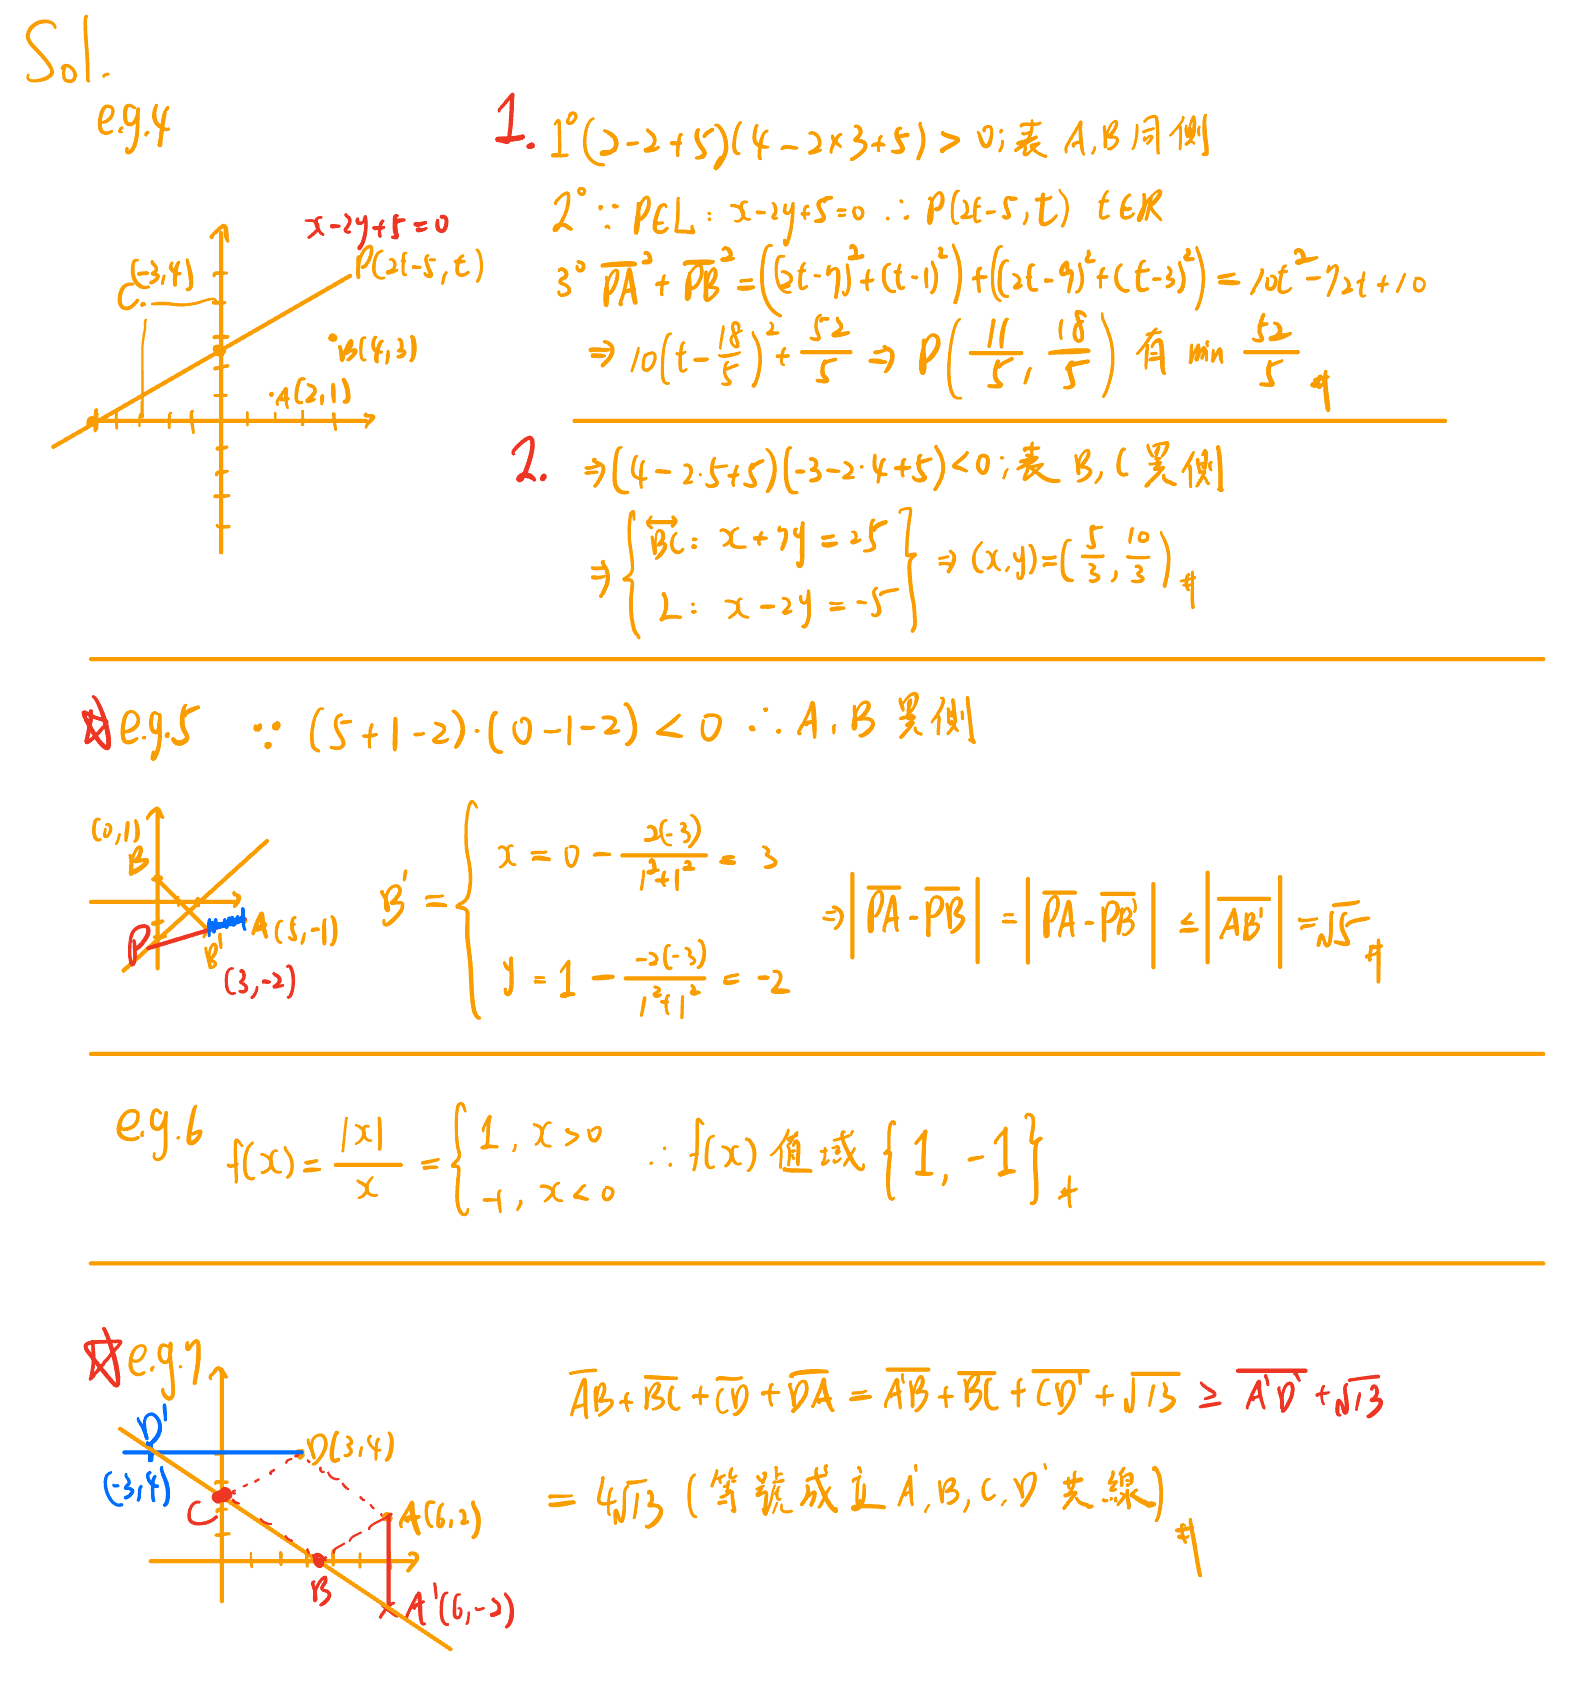 Sol.
e.g.4
x-2y+5=0
P(2t-5, t)
(-3,4)
C.
B(4,3)
A(2,1)
1. 1° (2-2+5)(4-2×3+5)>0;表 A,B同側
2° ∵ P∈L: x-2y+5=0 ∴ P(2t-5,t) t∈ℝ
3° \overline{PA}²+\overline{PB}²=((2t-7)²+(t-1)²)+((2t-9)²+(t-3)²)=10t²-72t+10
⇒ 10(t-18/5)²+52/5 ⇒ P(11/5, 18/5) 有 min 52/5 #
2. ⇒(4-2·5+5)(-3-2·4+5)<0;表 B,C 異側
⇒ { \overleftrightarrow{BC}: x+7y=25
L: x-2y=-5 } ⇒ (x,y)=(5/3, 10/3) #
☆ e.g.5 ∵ (5+1-2)·(0-1-2)<0 ∴ A,B 異側
(0,1)
B
P
B'
A(5,-1)
(3,-2)
B' = { x = 0 - 2(-3)/(1²+1²) = 3
y = 1 - -2(-3)/(1²+1²) = -2
⇒ |\overline{PA}-\overline{PB}| = |\overline{PA}-\overline{PB'}| ≤ |\overline{AB'}| = √5 #
e.g.6 f(x)=|x|/x = { 1, x>0
-1, x<0
∴ f(x) 值域 {1, -1} #
☆ e.g.7
D'
(-3,4)
D(3,4)
C
A(6,2)
B
A'(6,-2)
\overline{AB}+\overline{BC}+\overline{CD}+\overline{DA} = \overline{A'B}+\overline{BC}+\overline{CD'}+√13 ≥ \overline{A'D'}+√13
= 4√13 (等號成立 A',B,C,D' 共線) #